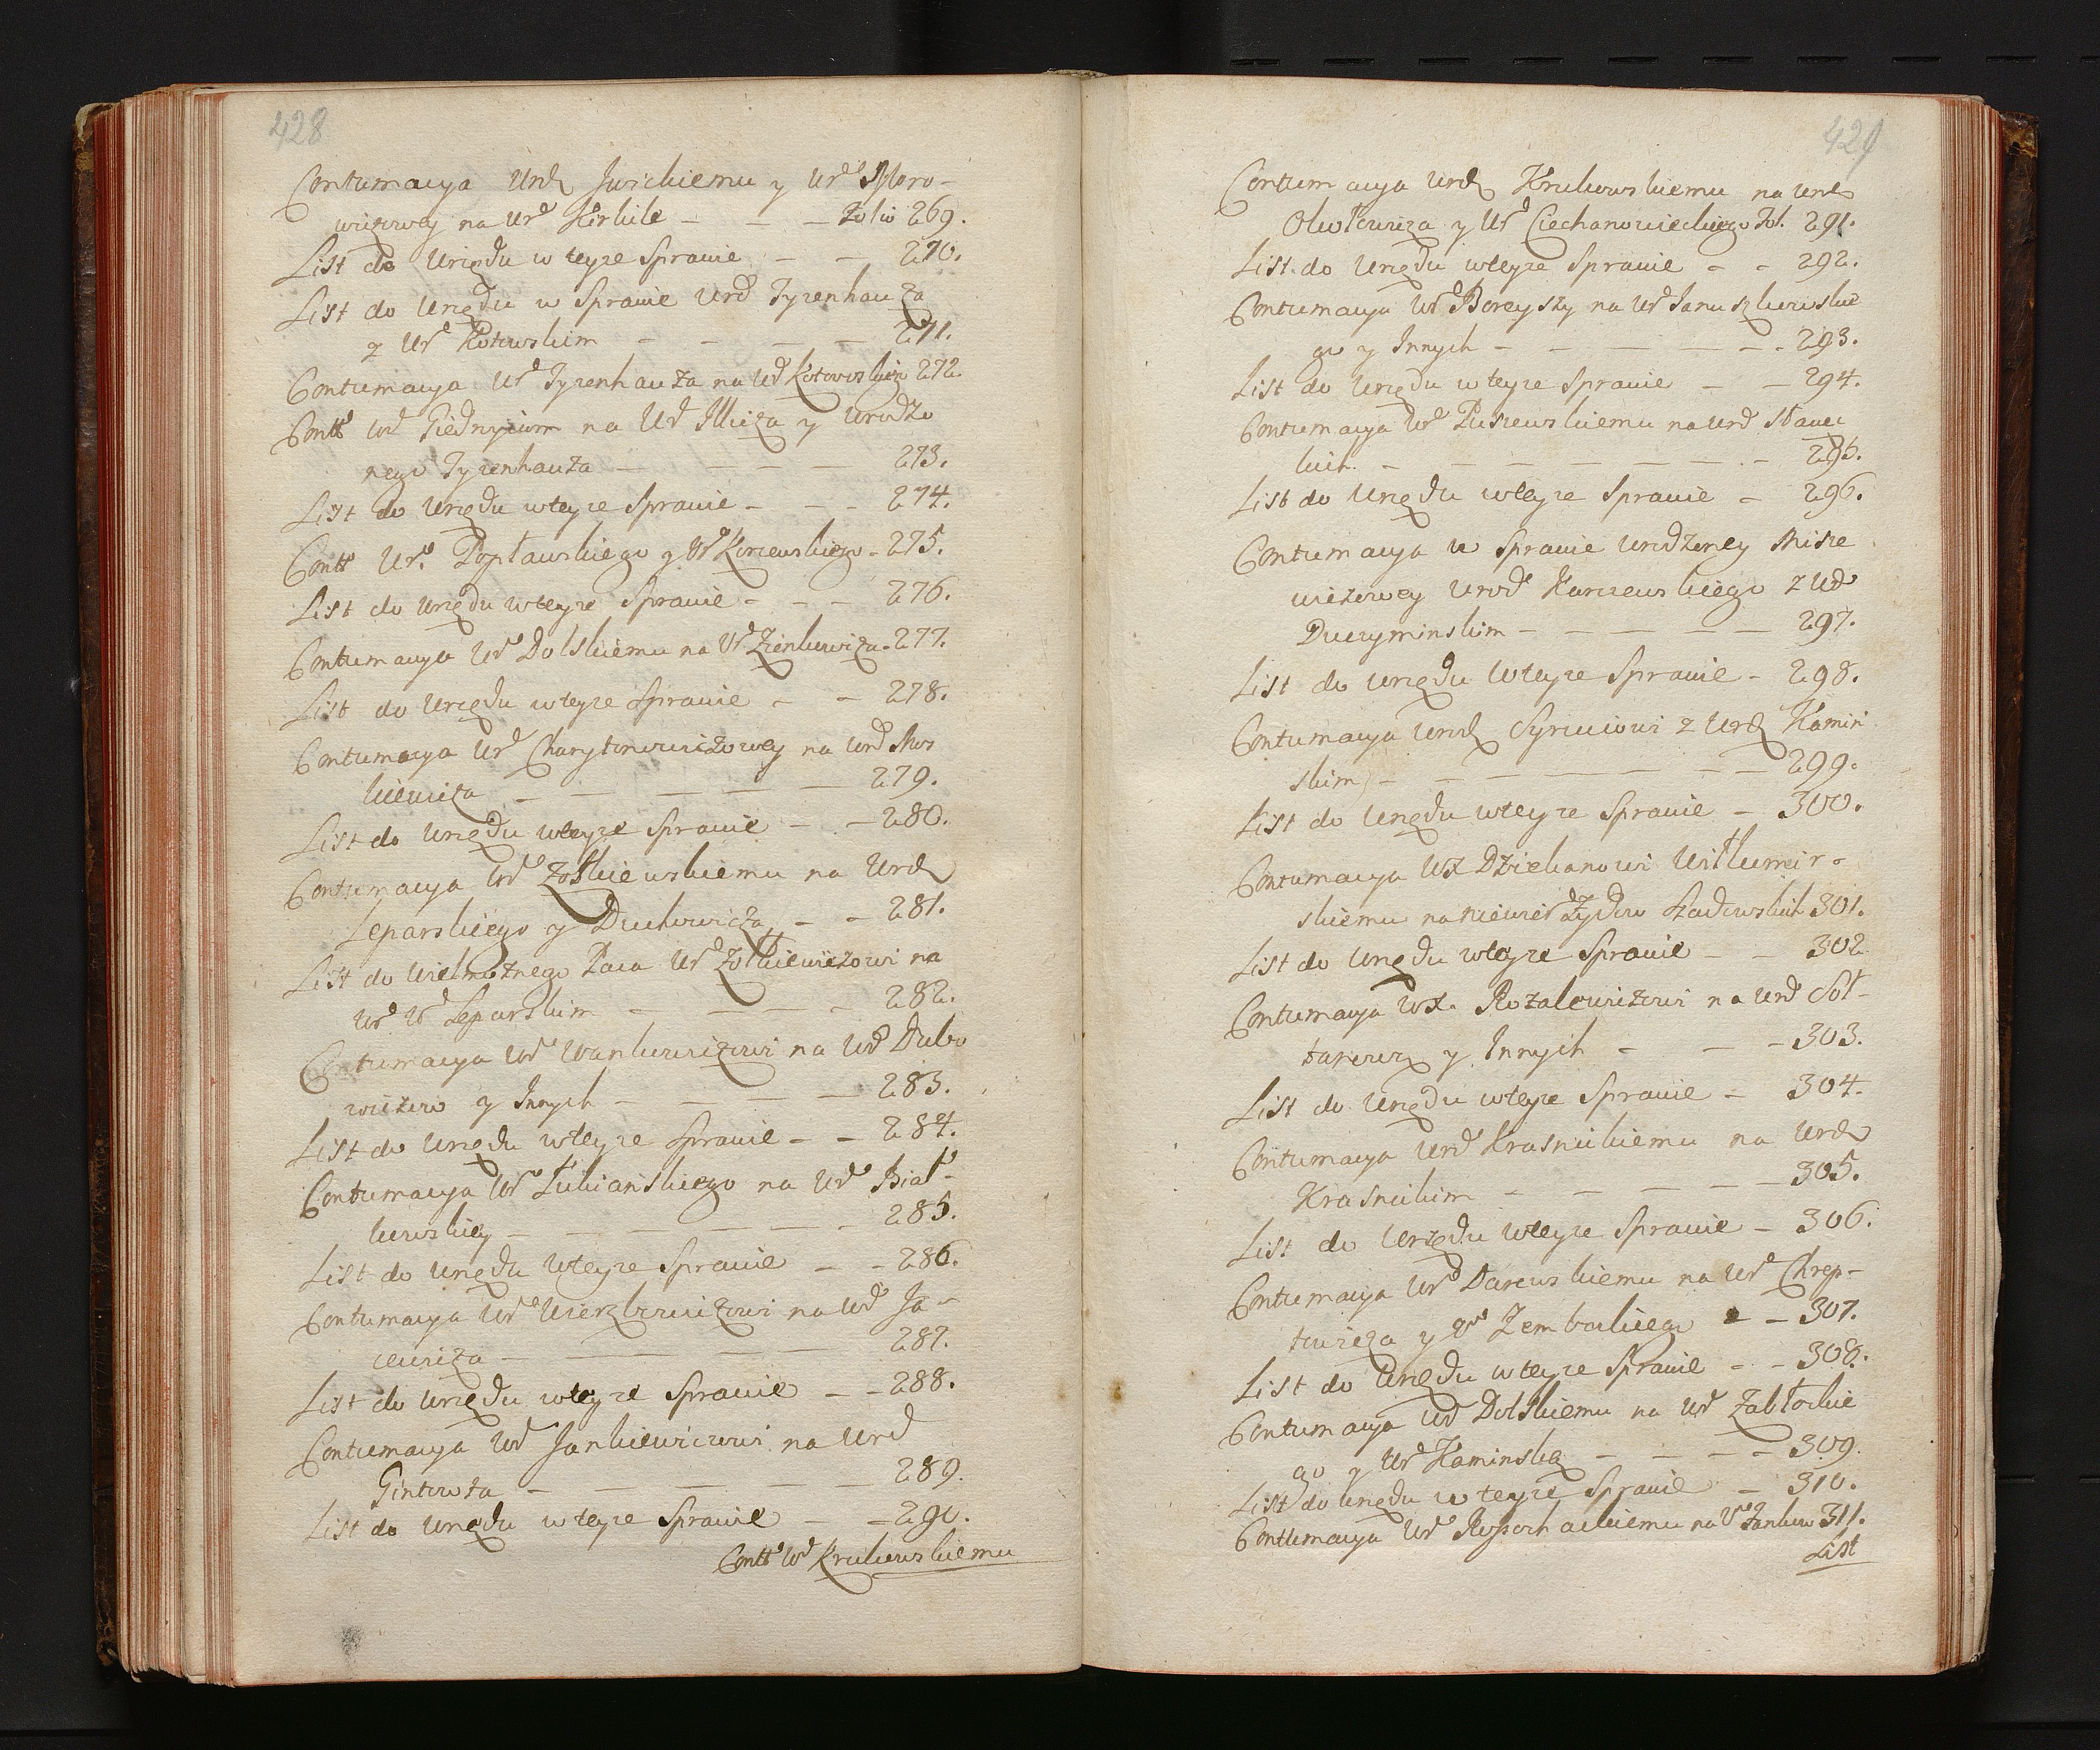 428
Contumacya Urd Jurickiemu y Urd
wiczowey na Urd Kirkile — — — Folio 269.
List do Urzędu w teyze Sprawie — — 270.
List do Urzędu w Sprawie Urd Tyzenhauza
z Urd Kotowskim — — — — 271.
Contumacya Urd Tyzenhauza na Urd Kotowskiego 272.
Contt Urd Giedrojciom na Urd Illicza y Urodzo
nego Tyzenhauza — — — — 273.
List do Urzędu w teyze Sprawie — — — 274.
Contt Urd. Popławskiego y Urd Korzewskiego — 275.
List do Urzędu w teyze Sprawie — — — 276.
Contumacya Urd Dolskiemu na Urd Zienkowicza. 277.
List do Urzędu w teyze Sprawie — — 278.
Contumacya Urd Charytonowiczowey na Urd Mos
kiewicza — — — — — 279.
List do Urzędu w teyze Sprawie — — 280.
Contumacya Urd Żołkiewskiemu na Urd
Leparskiego y Duchowicza — — 281.
List do Wielmożnego Paca Urd Żołkiewiczowi na
Urd Leparskim — — — — 282.
Contumacya Urd Wankowiczowi na Urd Dubo
wiczow y Innych — — — — 283.
List do Urzędu w teyze Sprawie — — 284.
Contumacya Urd Łukianskiego na Urd Biał-
kowskiey — — — — — 285.
List do Urzędu w teyze Sprawie — — 286.
Contumacya Urd Wierzbowiczowi na Urd Ja-
cewicza — — — — — 287.
List do Urzędu w teyze Sprawie — — 288.
Contumacya Urd Jankiewiczowi na Urd
Gintowta — — — — — 289.
List do Urzędu w teyze Sprawie — — 290.
Contt Urd Krukowskiemu
429
Contumacya Urd Krukowskiemu na Urd
Okołowicza y Urd Ciechanowieckiego Fol. 291.
List do Urzędu w teyze Sprawie — — 292.
Contumacya Urd Boreyszy na Urd Januszkowskie
go y Innych — — — — — 293.
List do Urzędu w teyze Sprawie — — 294.
Contumacya Urd Puszewskiemu na Urd Sławec
kich. — — — — — — 295.
List do Urzędu w teyze Sprawie — 296.
Contumacya w Sprawie Urodzoney Misze
wiczowey Urod Karczewskiego z Urd
Duczyminskim — — — — — 297.
List do Urzędu w teyze Sprawie — 298.
Contumacya Urod Syruciowi z Urod Kamin
skim — — — — — — 299.
List do Urzędu w teyze Sprawie — 300.
Contumacya WX Dziekanowi Wiłkomir-
skiemu na niewier Żydow Szadowskich 301.
List do Urzędu w teyze Sprawie — — 302
Contumacya WX. Rozalewiczowi na Urd Soł-
tanow y Innych — — — 303.
List do Urzędu w teyze Sprawie — 304.
Contumacya Urd Krasnickiemu na Urd
Krasnickim — — — — — 305.
List do Urzędu w teyze Sprawie — 306.
Contumacya Urd Darewskiemu na Urd Chrep-
towicza y Zembockiego — — 307.
List do Urzędu w teyze Sprawie — — 308.
Contumacya Urd Dolskiemu na Urd Zabłockie
go y Urd Kaminską — — — — 309.
List do Urzędu w teyze Sprawie — 310.
Contumacya Urd Rossochackiemu na Urd Jankow 311.
List